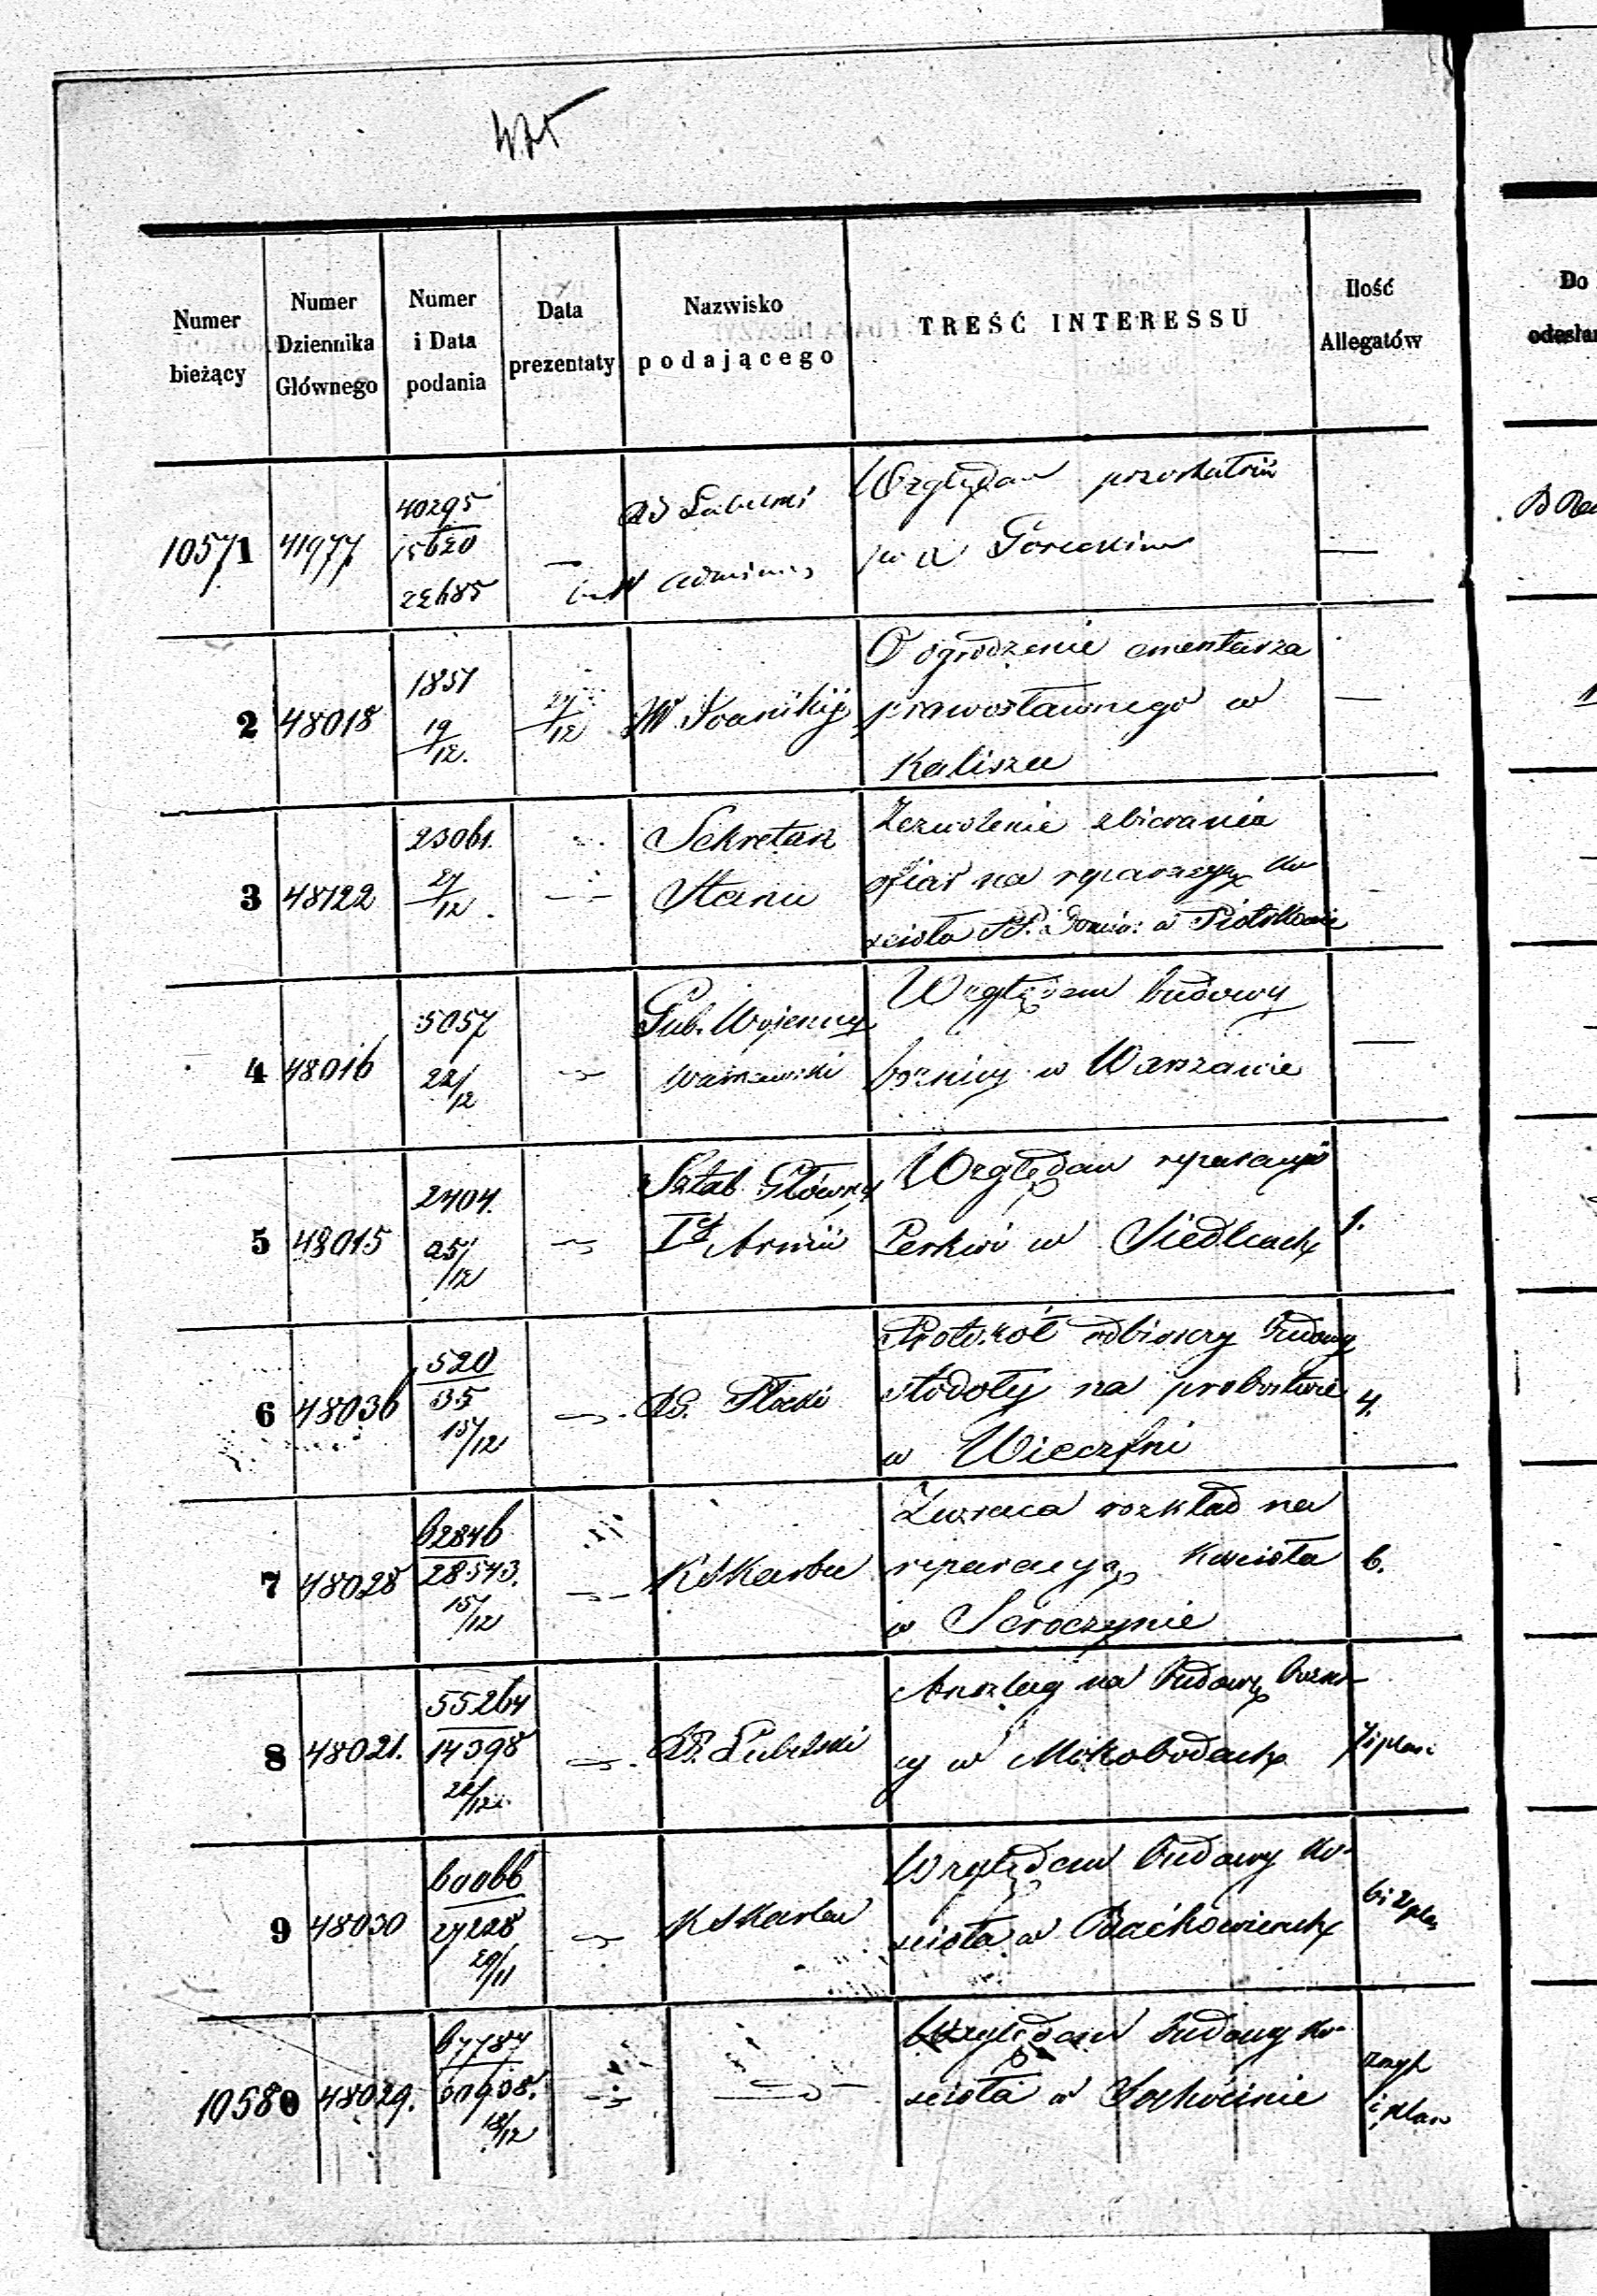 Numer bieżący
Numer Dziennika Głównego
Numer i Data podania
Data prezentaty
Nazwisko podającego
TREŚĆ INTERESSU
Ilość Allegatów
Do
10571
41977
40295
15620
22485
Względem
w
—
2
48018
1857
19/12.
27/12
O ogrodzenie cmentarza
prawosławnego w
Kaliszu
—
3
48122
23061.
27/12.
Sekretarz
Stanu
Zezwolenie zbierania
ofiar na reparacyą ko
scioła w Piotrkowie
4
48016
5057
22/12
Gub. Wojenny
Warszawski
Względem budowy
bożnicy w Warszawie
—
5
48015
2404.
25/12
Sztab Główny
Iej Armii
Względem reparacyi
Cerkwi w Siedlcach
1.
6
48036
520
35
15/12
RG. Płocki
Protokół odbiorczy budowy
stodoły na probostwie
w Wieczfni
4.
7
48028
62846
28543.
15/12
K Skarbu
Zwraca rozkład na
reparacyą kościoła
w Seroczynie
6.
8
48021.
55264
14398
22/12.
RG. Lubelski
Anszlag na budowę bożni
cy w Mokobodach
9
48030
60066
27228
29/11
K Skarbu
Względem budowy ko-
scioła w Baćkowicach
10580
48029.
67784
30908.
18/12
Względem budowy ko-
scioła w Sochocinie
i plan